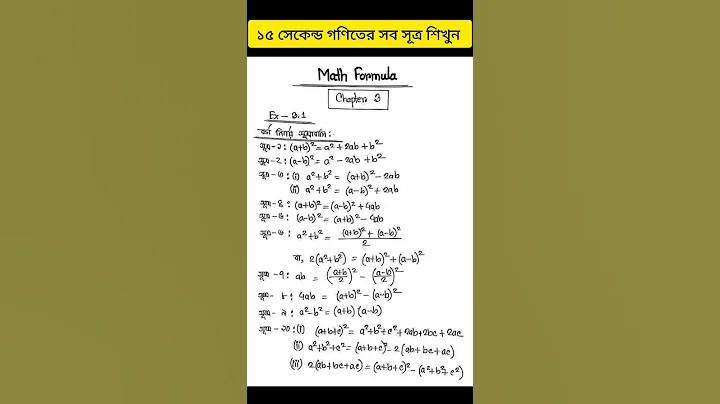 ১৫ সেকেন্ড গণিতের সব সূত্র শিখুন
Math Formula
Chapter 3
Ex - 3.1
বর্গ নির্ণয় সূত্রাবলি:
সূত্র-১: (a+b)² = a² + 2ab + b²
সূত্র-২: (a-b)² = a² - 2ab + b²
সূত্র-৩: (i) a²+b² = (a+b)² - 2ab
(ii) a²+b² = (a-b)² + 2ab
সূত্র-৪: (a+b)² = (a-b)² + 4ab
সূত্র-৫: (a-b)² = (a+b)² - 4ab
সূত্র-৬: a²+b² = ((a+b)² + (a-b)²)/2
বা, 2(a²+b²) = (a+b)² + (a-b)²
সূত্র-৭: ab = ((a+b)/2)² - ((a-b)/2)²
সূত্র-৮: 4ab = (a+b)² - (a-b)²
সূত্র-৯: a²-b² = (a+b)(a-b)
সূত্র-১০: (i) (a+b+c)² = a²+b²+c²+2ab+2bc+2ac
(ii) a²+b²+c² = (a+b+c)² - 2(ab+bc+ac)
(iii) 2(ab+bc+ac) = (a+b+c)² - (a²+b²+c²)